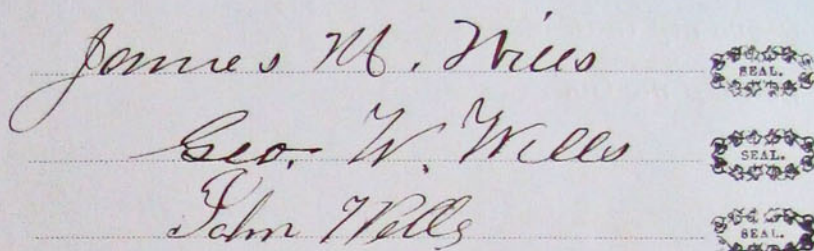 James M. Wills SEAL.
Geo. W. Wills SEAL.
John Wills SEAL.